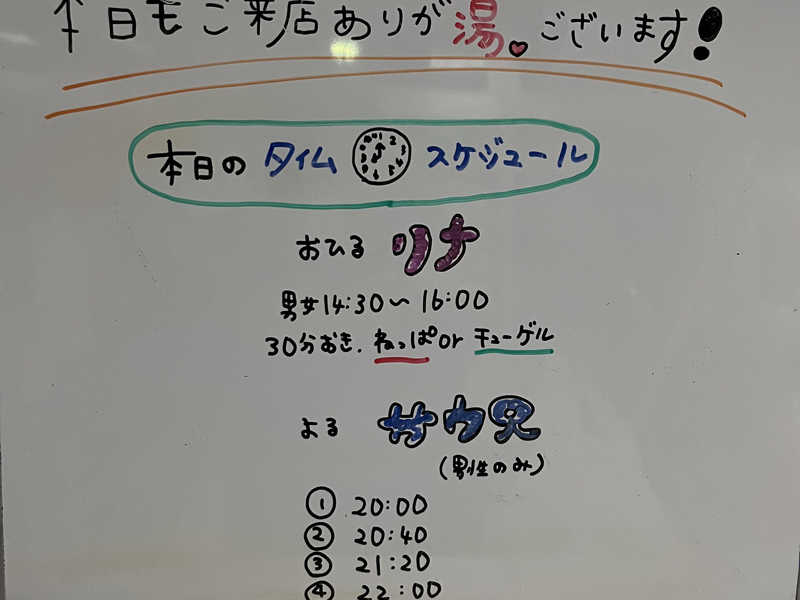 本日もご来店ありが湯ございます!
本日のタイムスケジュール
おひる リナ
男女14:30〜16:00
30分おき. ねっぱ or チューゲル
よる サウ兄
(男性のみ)
① 20:00
② 20:40
③ 21:20
④ 22:00